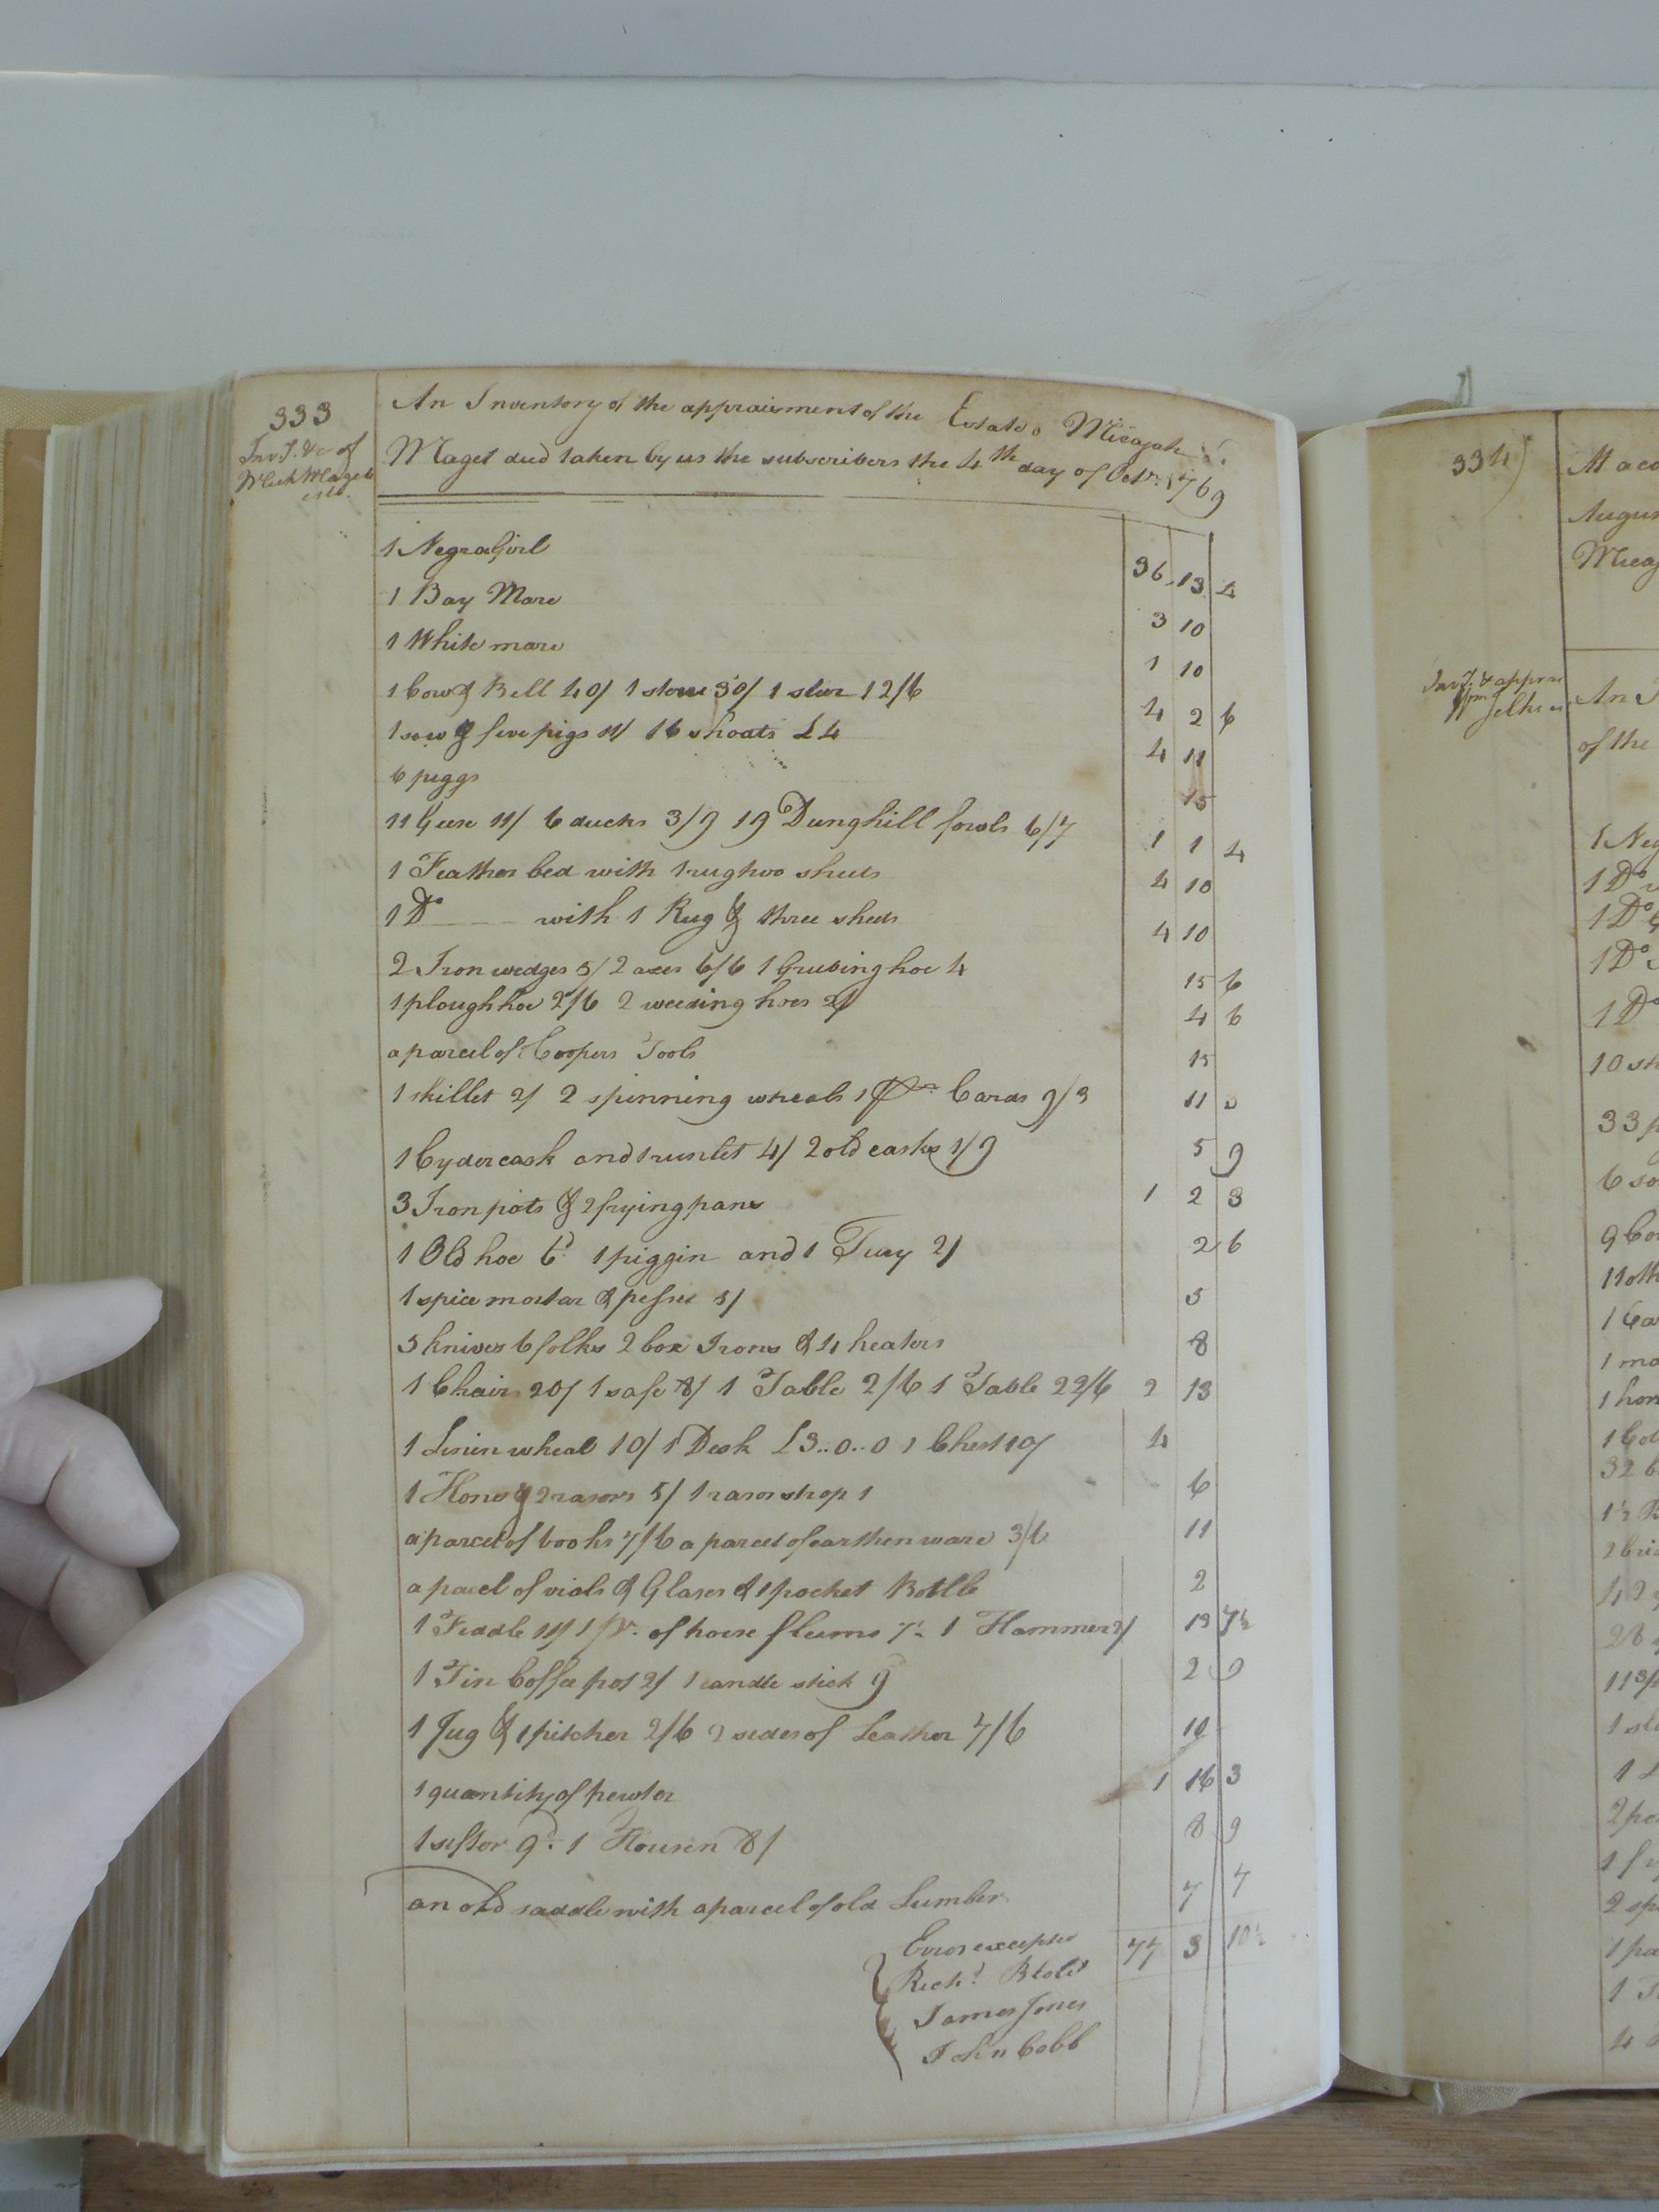 333
Invt. &c of
Mick Magets
estd.
An Inventory of the appraisment of the Estate o Micajah
Maget decd taken by us the subscribers the 4th day of Octr. 1769
1 Negra Girl 36 13 4
1 Bay Mare 3 10
1 White mare 1 10
1 Cow & Bell 40/ 1 30/ 1 steer 12/6 4 2 6
1 sow & five pigs 11/ 16 shoats £4 4 11
6 piggs 15
11 Geese 11/ 6 ducks 3/9 19 Dunghill fowls 6/7 1 1 4
1 Feather bed with 1 rug two sheets 4 10
1 Do with 1 Rug & three sheets 4 10
2 Iron wedges 5/ 2 axes 6/6 1 Grubing hoe 4 15 6
1 plough hoe 2/6 2 weeding hoes 2/ 4 6
a parcel of Coopers Tools 15
1 skillet 2/ 2 spinning wheals 1 pr Cards 9/3 11 3
1 Cyder cask and 1 runlet 4/ 2 old casks 1/9 5 9
3 Iron pots & 2 frying pans 1 2 3
1 Old hoe 6d 1 piggin and 1 Tray 2/ 2 6
1 spice mortar & pesset 5/ 5
5 knives 6 folks 2 box Irons & 4 heaters 8
1 Chair 20/ 1 safe 8/ 1 Table 2/6 1 Table 22/6 2 13
1 Linin wheal 10/ 1 Desk £3..0..0 1 Chest 10/ 4
1 Hone & 2 rasors 5/ 1 rasor strop 1 6
a parcel of books 7/6 a parcel of earthen ware 3/6 11
a parcel of vials & Glases & 1 pocket Bottle 2
1 Feddle 11/ 1 pr. of horse fleams 7½ 1 Hammer 2/ 13 7½
1 Tin Coffee pot 2/ 1 candle stick 9d 2 9
1 Jug & 1 pitcher 2/6 2 sides of Leather 7/6 10
1 quantity of pewter 1 16 3
1 sifter 9d. 1 Housen 8/ 8 9
an old saddle with a parcel of old Lumber 7 7
Erros excepted 77 3 10½
Richd.
James Jones
John Cobb
334)
Augus
Micaj
Invt. & appra
An I
of the
1 Neg
1 Do
1 Do
1 Do
1 Do
10 sh
33 p
6 so
9 Co
1 ma
1 hor
32 b
11 3/
1 sl
2 sp
1 pa